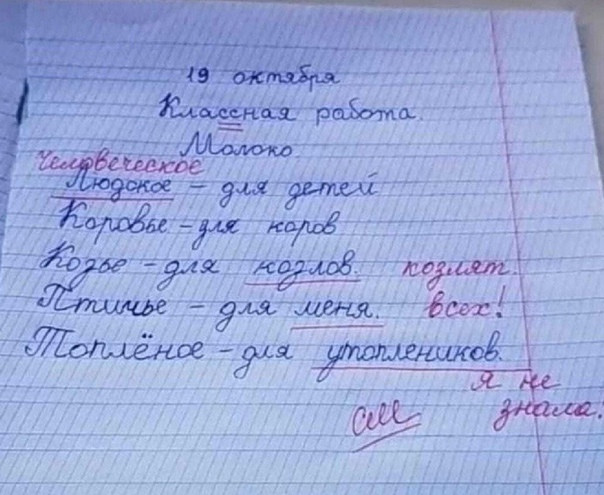 19 октября
Классная работа.
Молоко.
Человеческое
Людское - для детей
Коровье - для коров
Козье - для козлов. козлят.
Птичье - для меня. всех!
Топлёное - для утоплеников.
Я не
знала!
См